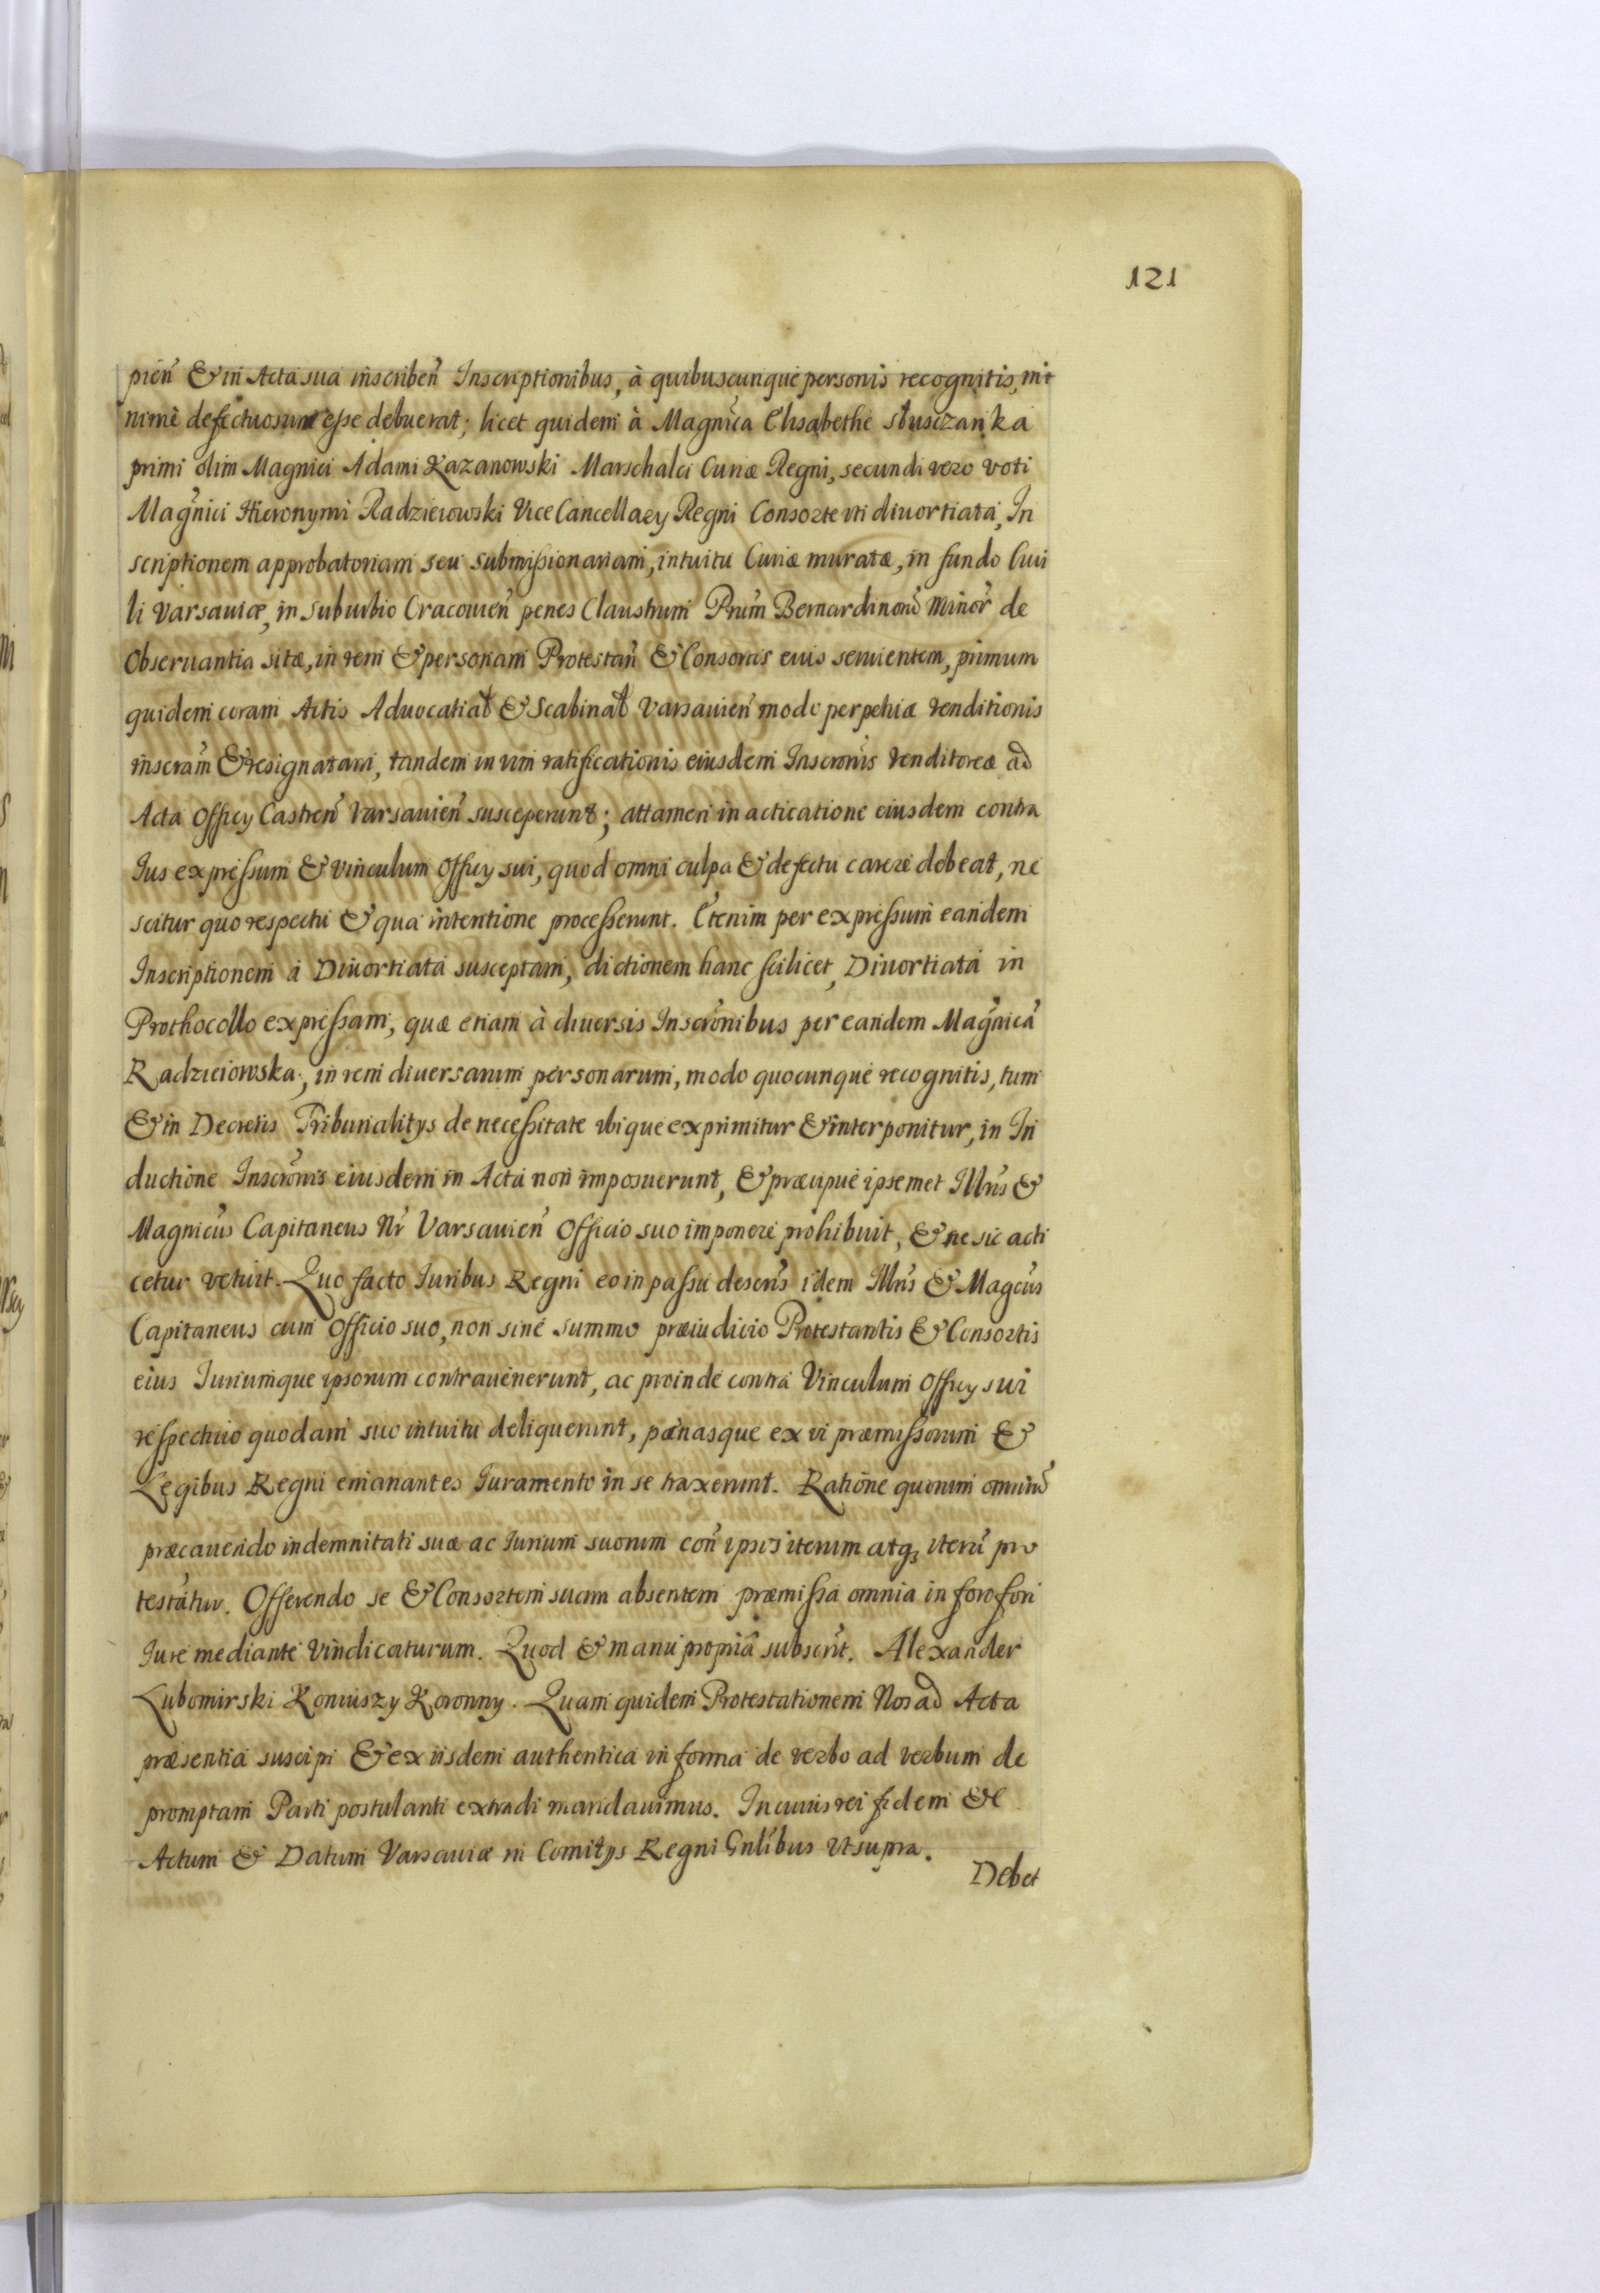 121
pień & in Acta sua inscribeń Inscriptionibus, à quibuscunque personis recognitis, mi
nimè defectuosum esse debuerat; licet quidem à Magnica Elisabethe Słusczanka
primi olim Magnici Adami Kazanowski Marschalci Curiæ Regni, secundi vero voti
Magnici Hieronymi Radzieiowski Vice Cancellary Regni Consorte vti diuortiata, In
scriptionem approbatoriam seu submissionariam, intuitu Curiæ muratæ, in fundo Ciui
li Varsauiæ, in suburbio Cracouień penes Claustrum Prum Bernardinorũ Minor de
Obseruantia sitæ, in rem & personam Protestań & Consortis eius seruientem, primum
quidem coram Actis Aduocatiat & Scabinat Varsauień modo perpetuæ venditionis
inscram & resignatam, tandem in vim ratificationis eiusdem Inscronis venditoreæ ad
Acta Officy Castreń Varsauień susceperunt; attamen in acticatione eiusdem contra
Ius expressum & vinculum Officy sui, quod omni culpa & defectu carere debeat, ne
scitur quo respectu & qua intentione processerunt. Etenim per expressum eandem
Inscriptionem à Diuortiata susceptam, dictionem hanc scilicet, Diuortiata in
Prothocollo expressam, quæ etiam à diuersis Inscronibus per eandem Magnica
Radzieiowska, in rem diuersarum personarum, modo quocunque recognitis, tum
& in Decretis Tribunalitys de necessitate vbique exprimitur & interponitur, in In
ductione Inscronis eiusdem in Acta non imposuerunt, & præcipuè ipsemet Illris &
Magnicus Capitaneus Nr Varsauień Officio suo imponere prohibuit, & ne sic acti
cetur vetuit. Quo facto Iuribus Regni eo in passu descris idem Illris & Magcus
Capitaneus cum Officio suo, non sinè summo præiudicio Protestantis & Consortis
eius Iuriumque ipsorum contrauenerunt, ac proinde contra Vinculum Officy sui
respectuio quodam suo intuitu deliquerunt, pænasque ex vi præmissorum &
Legibus Regni emanantes Iuramento in se traxerunt. Ratione quorum omniũ
præcauendo indemnitati suæ ac Iurium suorum coń ipsis iterum atq₃ iterũ pro
testatur. Offerendo se & Consortem suam absentem præmissa omnia in foro fori
Iure mediante vindicaturum. Quod & manu propria subscrit. Alexander
Lubomirski Koniuszy Koronny. Quam quidem Protestationem Nos ad Acta
præsentia suscipi & ex iisdem authentica in forma de verbo ad verbum de
promptam Parti postulanti extradi mandauimus. In cuius rei fidem &c
Actum & Datum Varsauiæ in Comitys Regni Gnlibus vt supra.
Debet